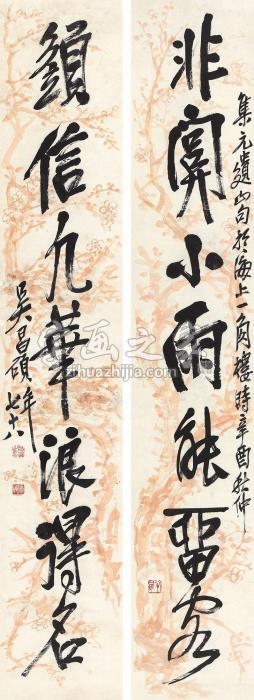 集元遺山句於海上一角樓時辛酉秋仲
非關小雨能畱客
信九華浪得名
吳昌碩年七十八
画之
zihuazhijia.com